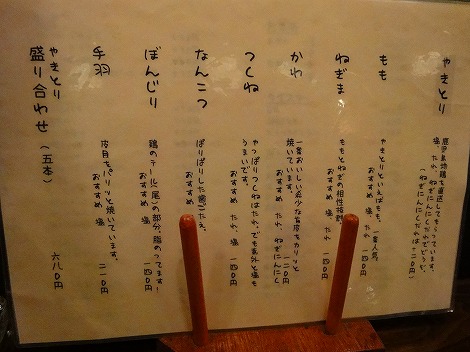 やきとり
鹿児島地鶏を直送してもらっています。
塩、たれ、ねぎにんにくだれでどうぞ。
(ねぎにんにくだれは+二〇円)
もも
やきとりといえばもも。一番人気。
おすすめ たれ 一四〇円
ねぎま
ももとねぎの相性抜群。
おすすめ たれ、塩 一四〇円
かわ
一番おいしい希少な首皮をカリッと
焼いています。 一二〇円
おすすめ たれ、塩、ねぎにんにく
つくね
やっぱりつくねはたれ。でも意外と塩も
うまいです。
おすすめ たれ、塩 一四〇円
なんこつ
ぱりぱりした歯ごたえ。
おすすめ 塩
ぼんじり
鶏のテール(尾)の部分。脂のってます!
おすすめ 塩 一四〇円
手羽
皮目をパリッと焼いています。
おすすめ 塩 二一〇円
やきとり
盛り合わせ(五本) 六八〇円